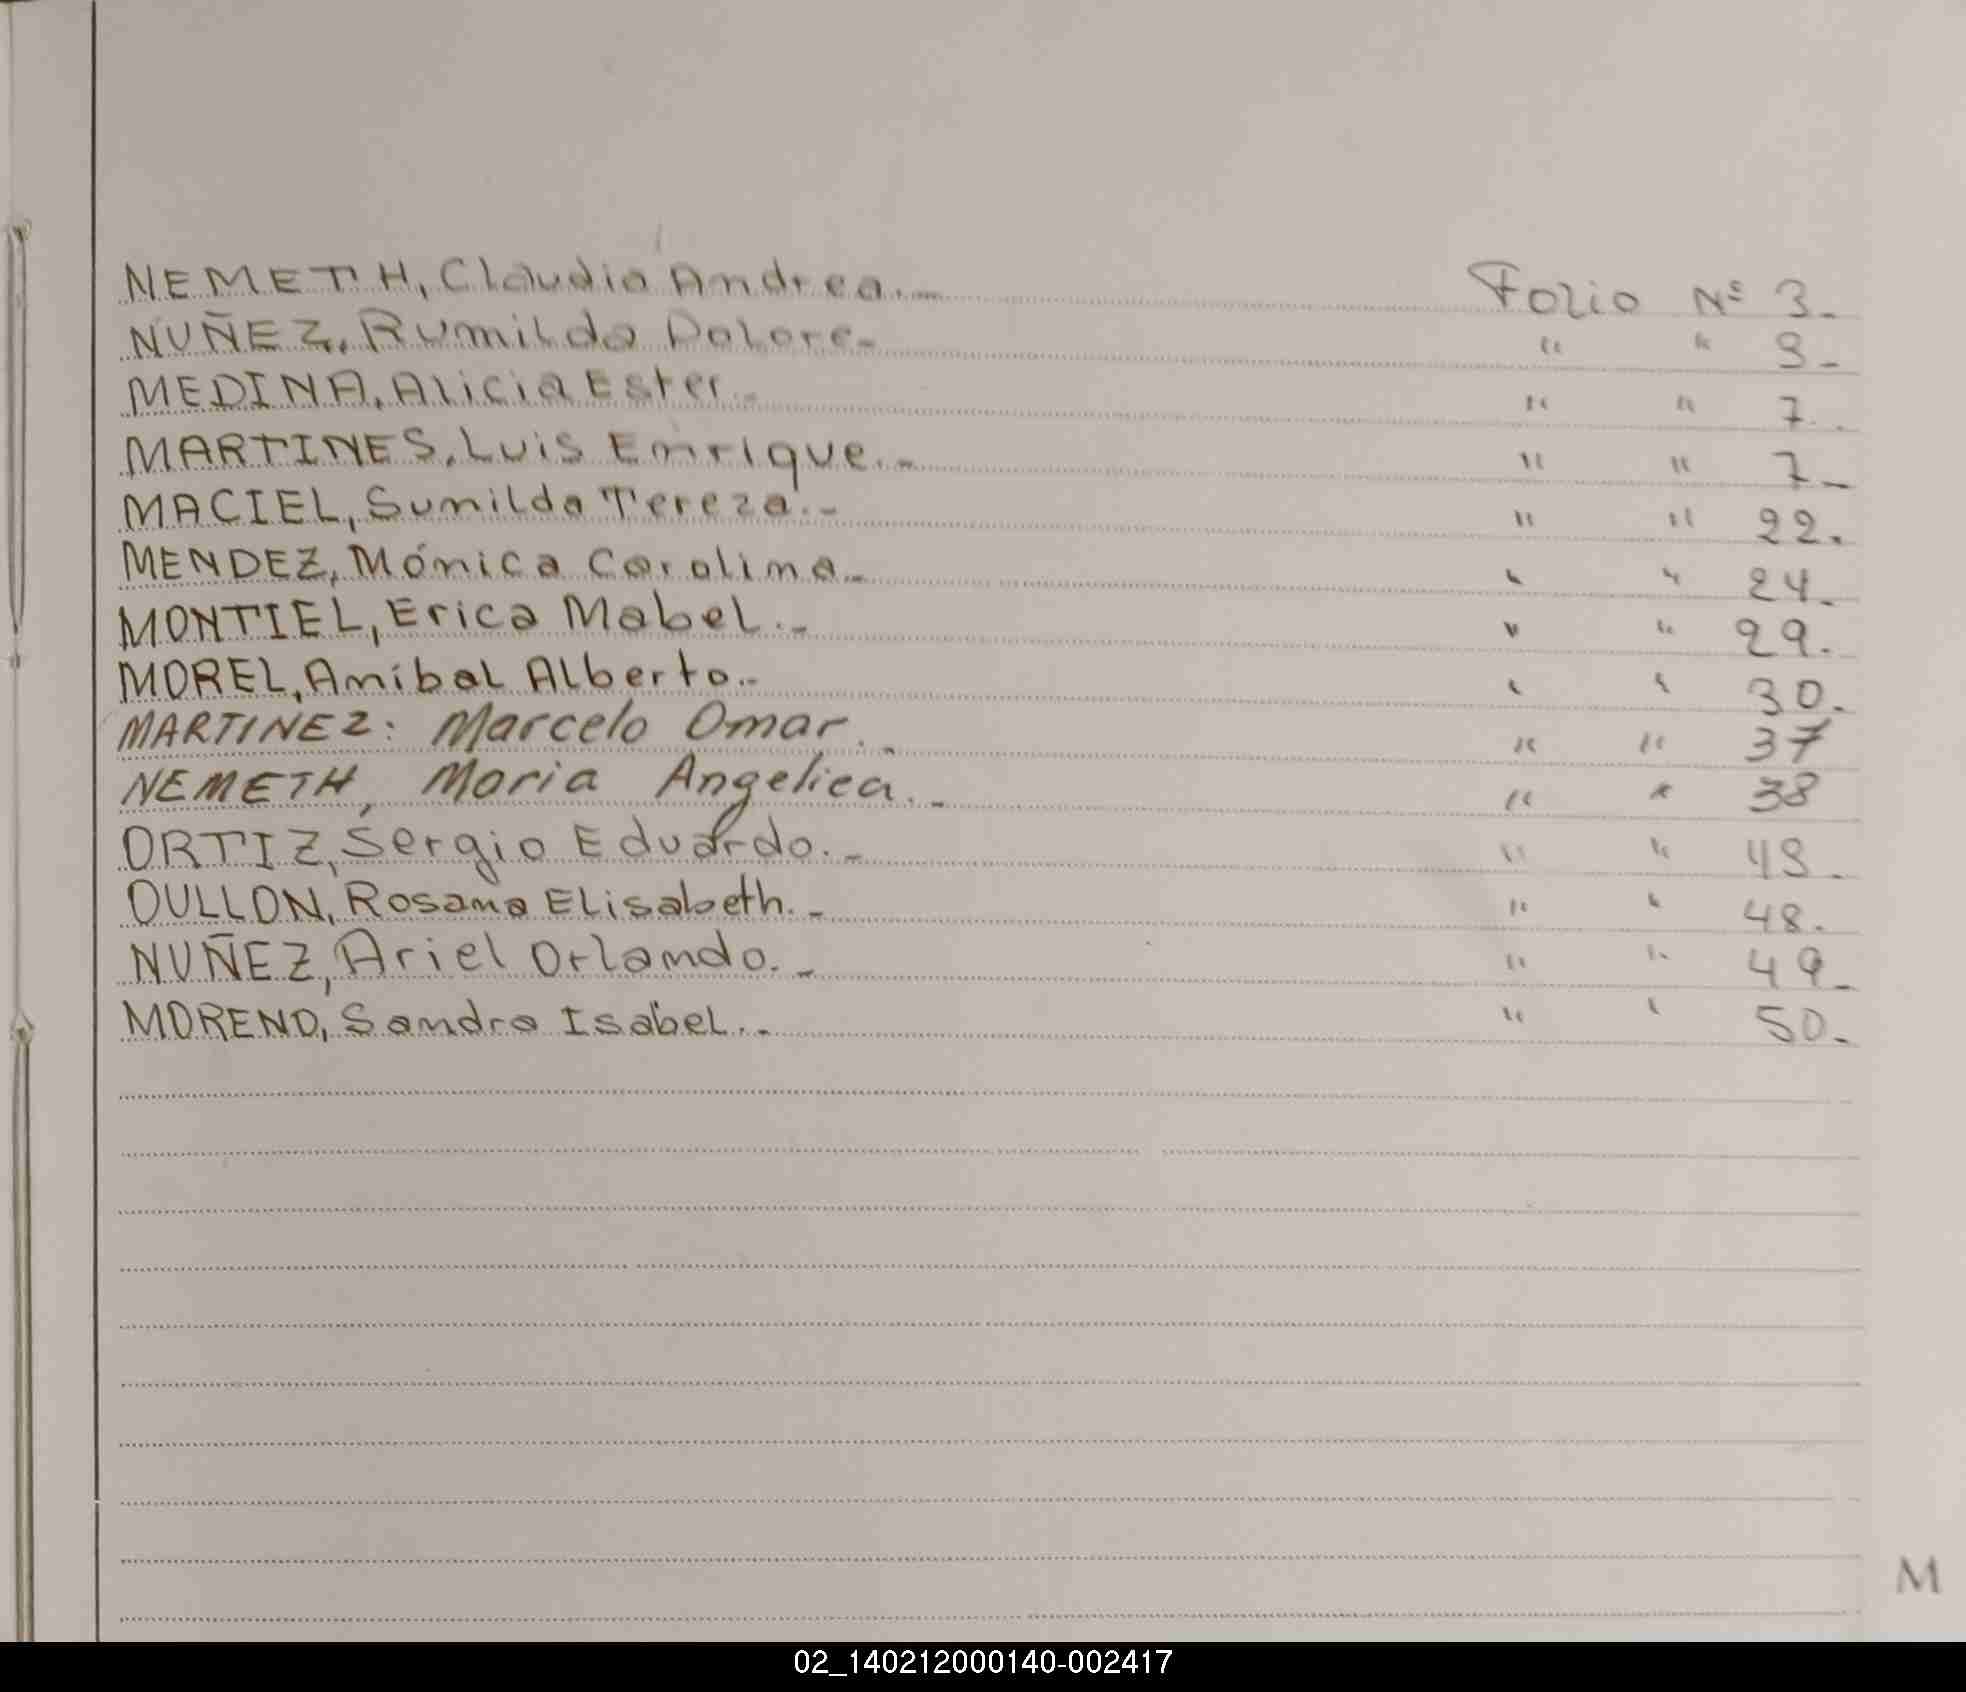 NEMETH, Claudia Andrea.- Folio Nº 3.-
NUÑEZ, Rumilda Dolore- " " 3-
MEDINA, Alicia Ester.- " " 7.
MARTINES, Luis Enrique.- " " 7-
MACIEL, Sunilda Tereza.- " " 22.
MENDEZ, Mónica Carolina- " " 24.-
MONTIEL, Erica Mabel.- " " 29.
MOREL, Anibal Alberto.- " " 30.-
MARTINEZ: Marcelo Omar.- " " 37
NEMETH, Maria Angelica.- " " 38
ORTIZ, Sergio Eduardo.- " " 43.-
OULLON, Rosana Elisabeth.- " " 48.
NUÑEZ, Ariel Orlando.- " " 49.-
MORENO, Sandra Isabel.- " " 50.-
M
02_140212000140-002417